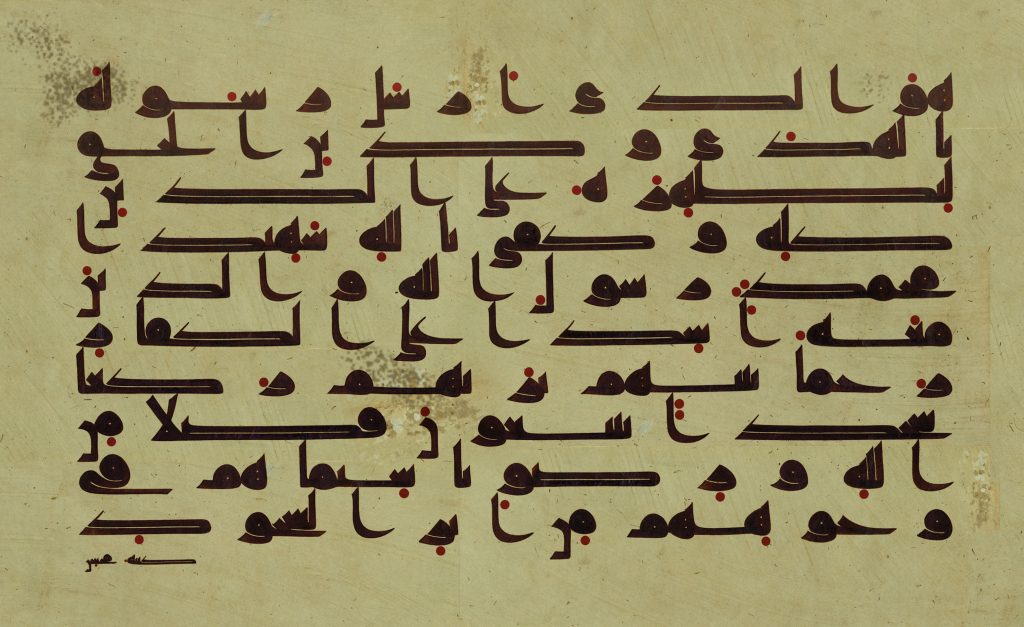 هو الذي أرسل رسوله
بالهدى ودين الحق
ليظهره على الدين
كله وكفى بالله شهيدا
محمد رسول الله والذين
معه أشدا على الكفا
ر رحما بينهم تريهم ركعا
سجدا يبتغون فضلا من
الله ورضونا سيماهم في
وجوههم من أثر السجود